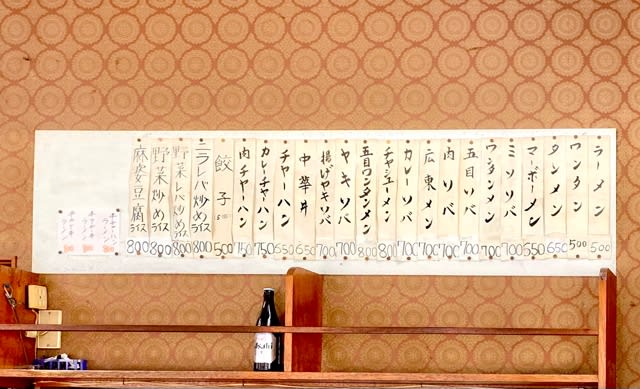 ラーメン 500
ワンタン 500
タンメン 650
マーボーメン 550
ミソソバ 700
ワンタンメン 700
五目ソバ 700
肉ソバ 700
広東メン 700
カレーソバ 700
チャシューメン 800
五目ワンタンメン 800
ヤキソバ 700
揚げヤキソバ 700
中華丼 650
チャーハン 550
カレーチャーハン 750
肉チャーハン 750
餃子 500
ニラレバ炒めライス 800
野菜レバ炒めライス 800
野菜炒めライス 800
麻婆豆腐ライス 800
Asahi